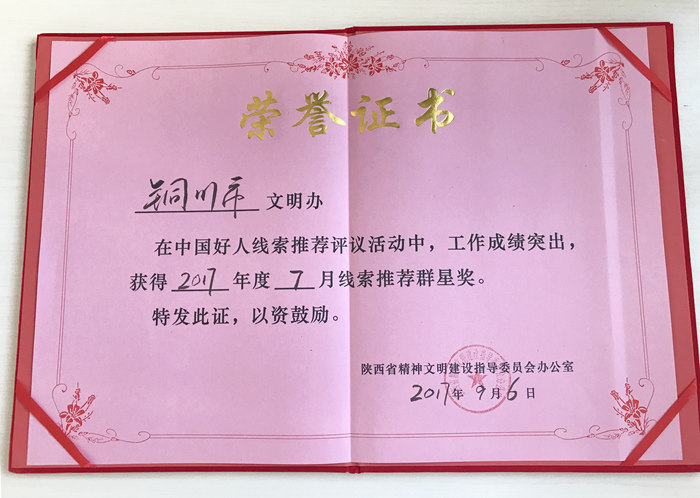 荣誉证书
铜川市 文明办
在中国好人线索推荐评议活动中，工作成绩突出，
获得 2017 年度 7 月线索推荐群星奖。
特发此证，以资鼓励。
陕西省精神文明建设指导委员会办公室
2017年9月6日